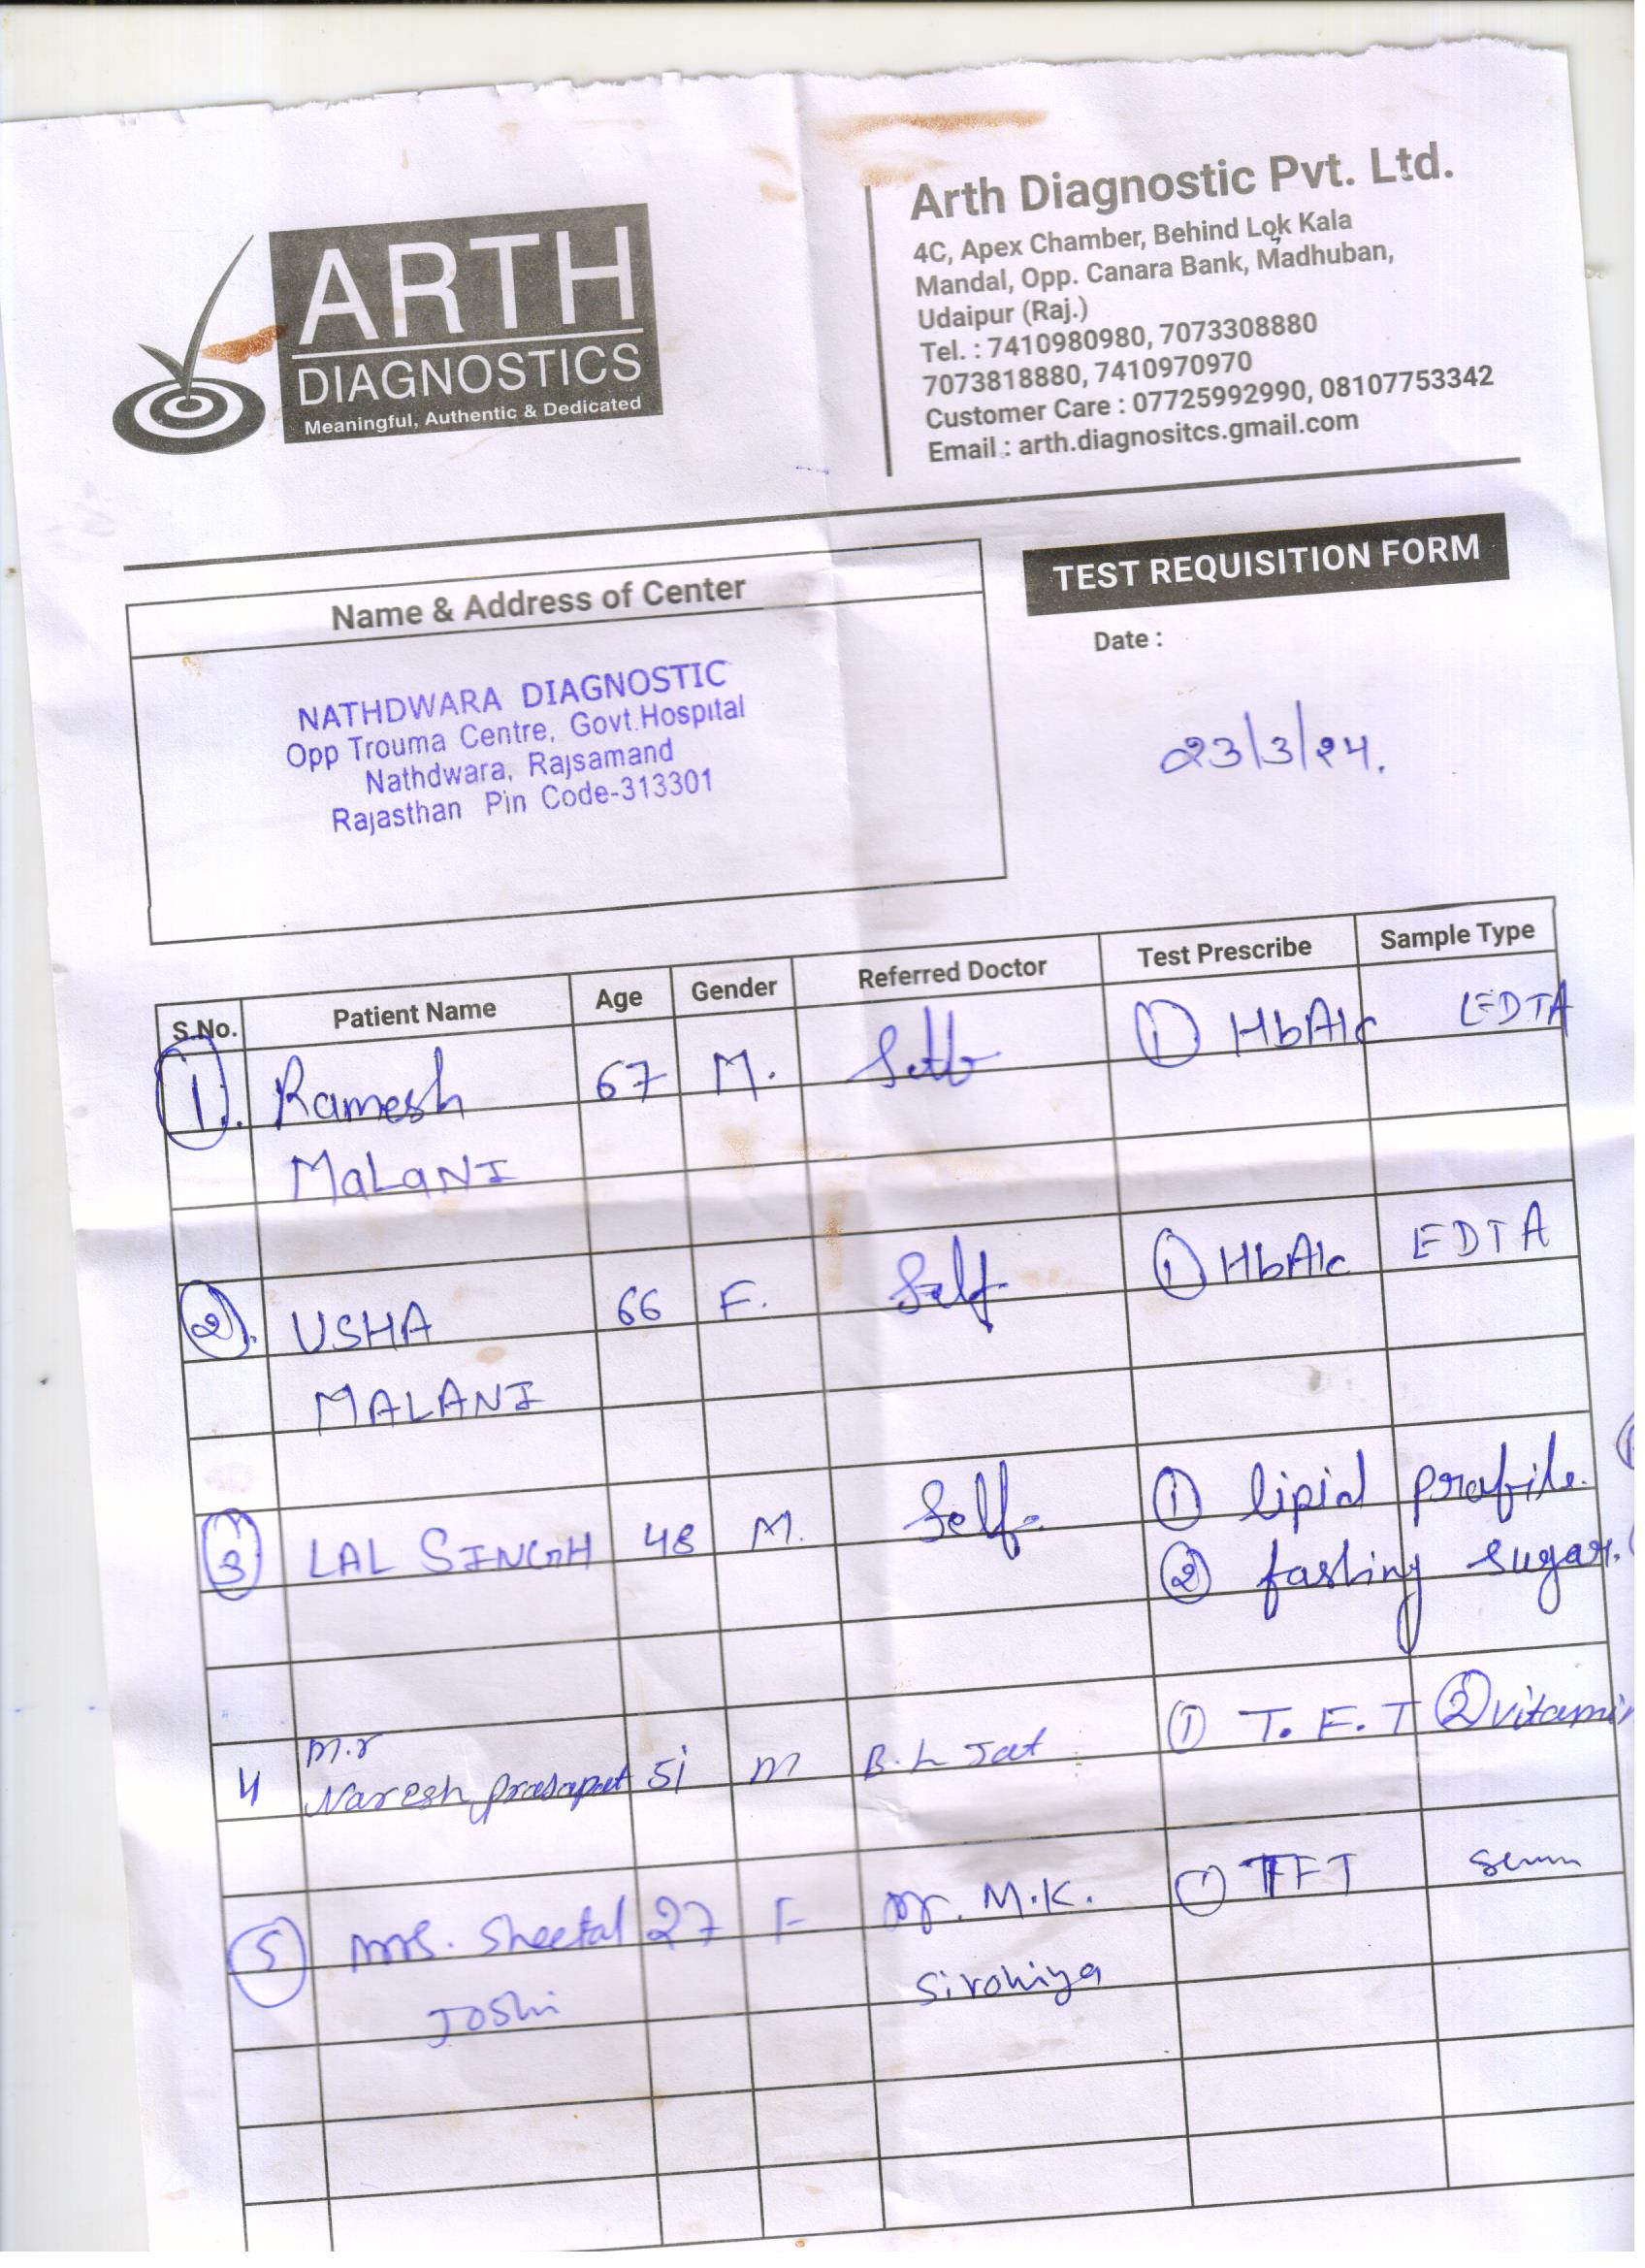 ARTH
DIAGNOSTICS
Meaningful, Authentic & Dedicated
Arth Diagnostic Pvt. Ltd.
4C, Apex Chamber, Behind Lok Kala
Mandal, Opp. Canara Bank, Madhuban,
Udaipur (Raj.)
Tel. : 7410980980, 7073308880
7073818880, 7410970970
Customer Care : 07725992990, 08107753342
Email : arth.diagnositcs.gmail.com
Name & Address of Center
NATHDWARA DIAGNOSTIC
Opp Trouma Centre, Govt.Hospital
Nathdwara, Rajsamand
Rajasthan Pin Code-313301
TEST REQUISITION FORM
Date :
23/3/24.
S.No. Patient Name Age Gender Referred Doctor Test Prescribe Sample Type
1. Ramesh 67 M. Self ① HbA1c EDTA
MaLaNI
2. USHA 66 F. Self ① HbA1c EDTA
MALANI
3 LAL SINGH 48 M. Self ① lipid profile.
② fasting sugar.
M.r
4 Naresh prasapat 51 M B.L Jat ① T.F.T ② vitamin
5 Mrs. Sheetal 27 F Dr. M.K. ① TFT Serum
Joshi Sirohiya